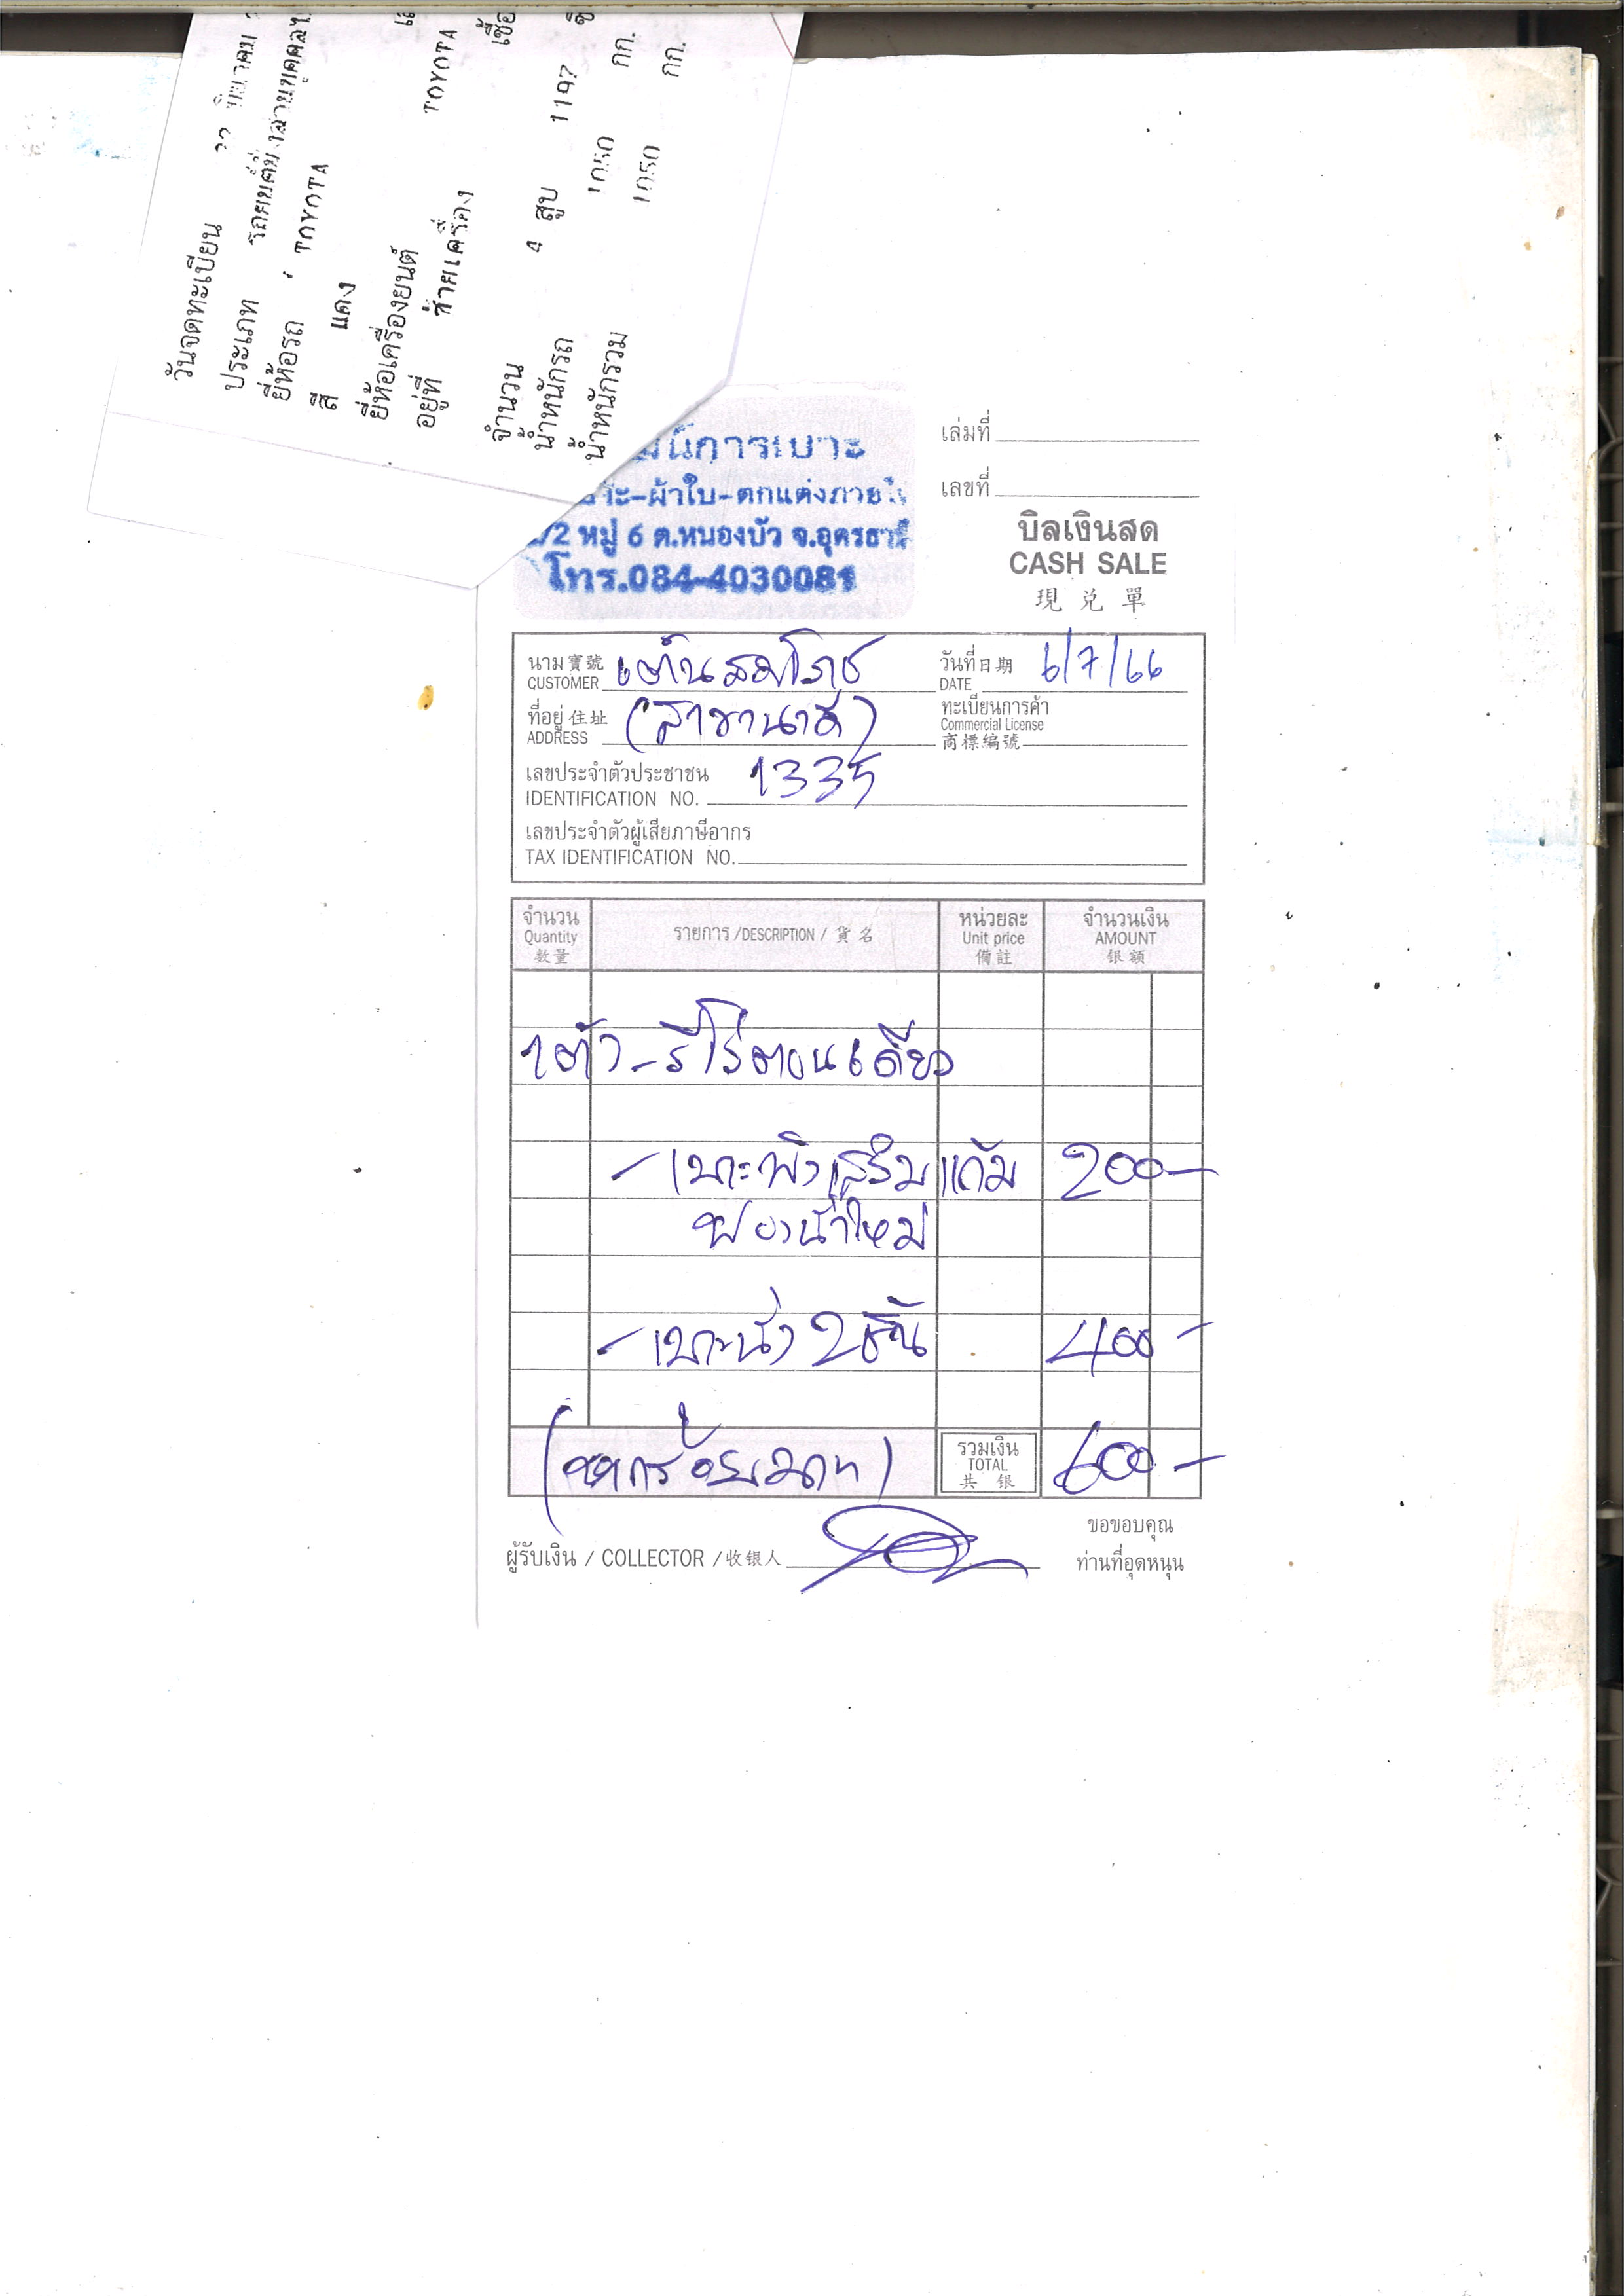 วันจดทะเบียน
ประเภท รถยนต์นั่งส่วนบุคคล
ยี่ห้อรถ TOYOTA
สี แดง
ยี่ห้อเครื่องยนต์ TOYOTA
อยู่ที่ ซ้ายเครื่อง
จำนวน 4 สูบ 1197
น้ำหนักรถ 1050 กก.
น้ำหนักรวม 1050 กก.
การเบาะ
-ผ้าใบ-ตกแต่งภายใน
/2 หมู่ 6 ต.หนองบัว จ.อุดรธานี
โทร.084-4030081
เล่มที่
เลขที่
บิลเงินสด
CASH SALE
現兑單
นาม寶號 CUSTOMER เต้นสมโภช
วันที่日期 DATE 6/7/66
ที่อยู่住址 ADDRESS (สาขานาดี)
ทะเบียนการค้า
Commercial License
商標編號
เลขประจำตัวประชาชน
IDENTIFICATION NO. 1335
เลขประจำตัวผู้เสียภาษีอากร
TAX IDENTIFICATION NO.
จำนวน Quantity 数量
รายการ /DESCRIPTION / 貨名
หน่วยละ Unit price 備註
จำนวนเงิน AMOUNT 银额
1ตัว-รีโร่ตอนเดียว
-เบาะพิงเสริมแก้ม 200-
ฟองน้ำใหม่
-เบาะนั่ง 2ชิ้น 400-
(หกร้อยบาท) รวมเงิน TOTAL 共银 600-
ผู้รับเงิน / COLLECTOR /收银人
ขอขอบคุณ
ท่านที่อุดหนุน